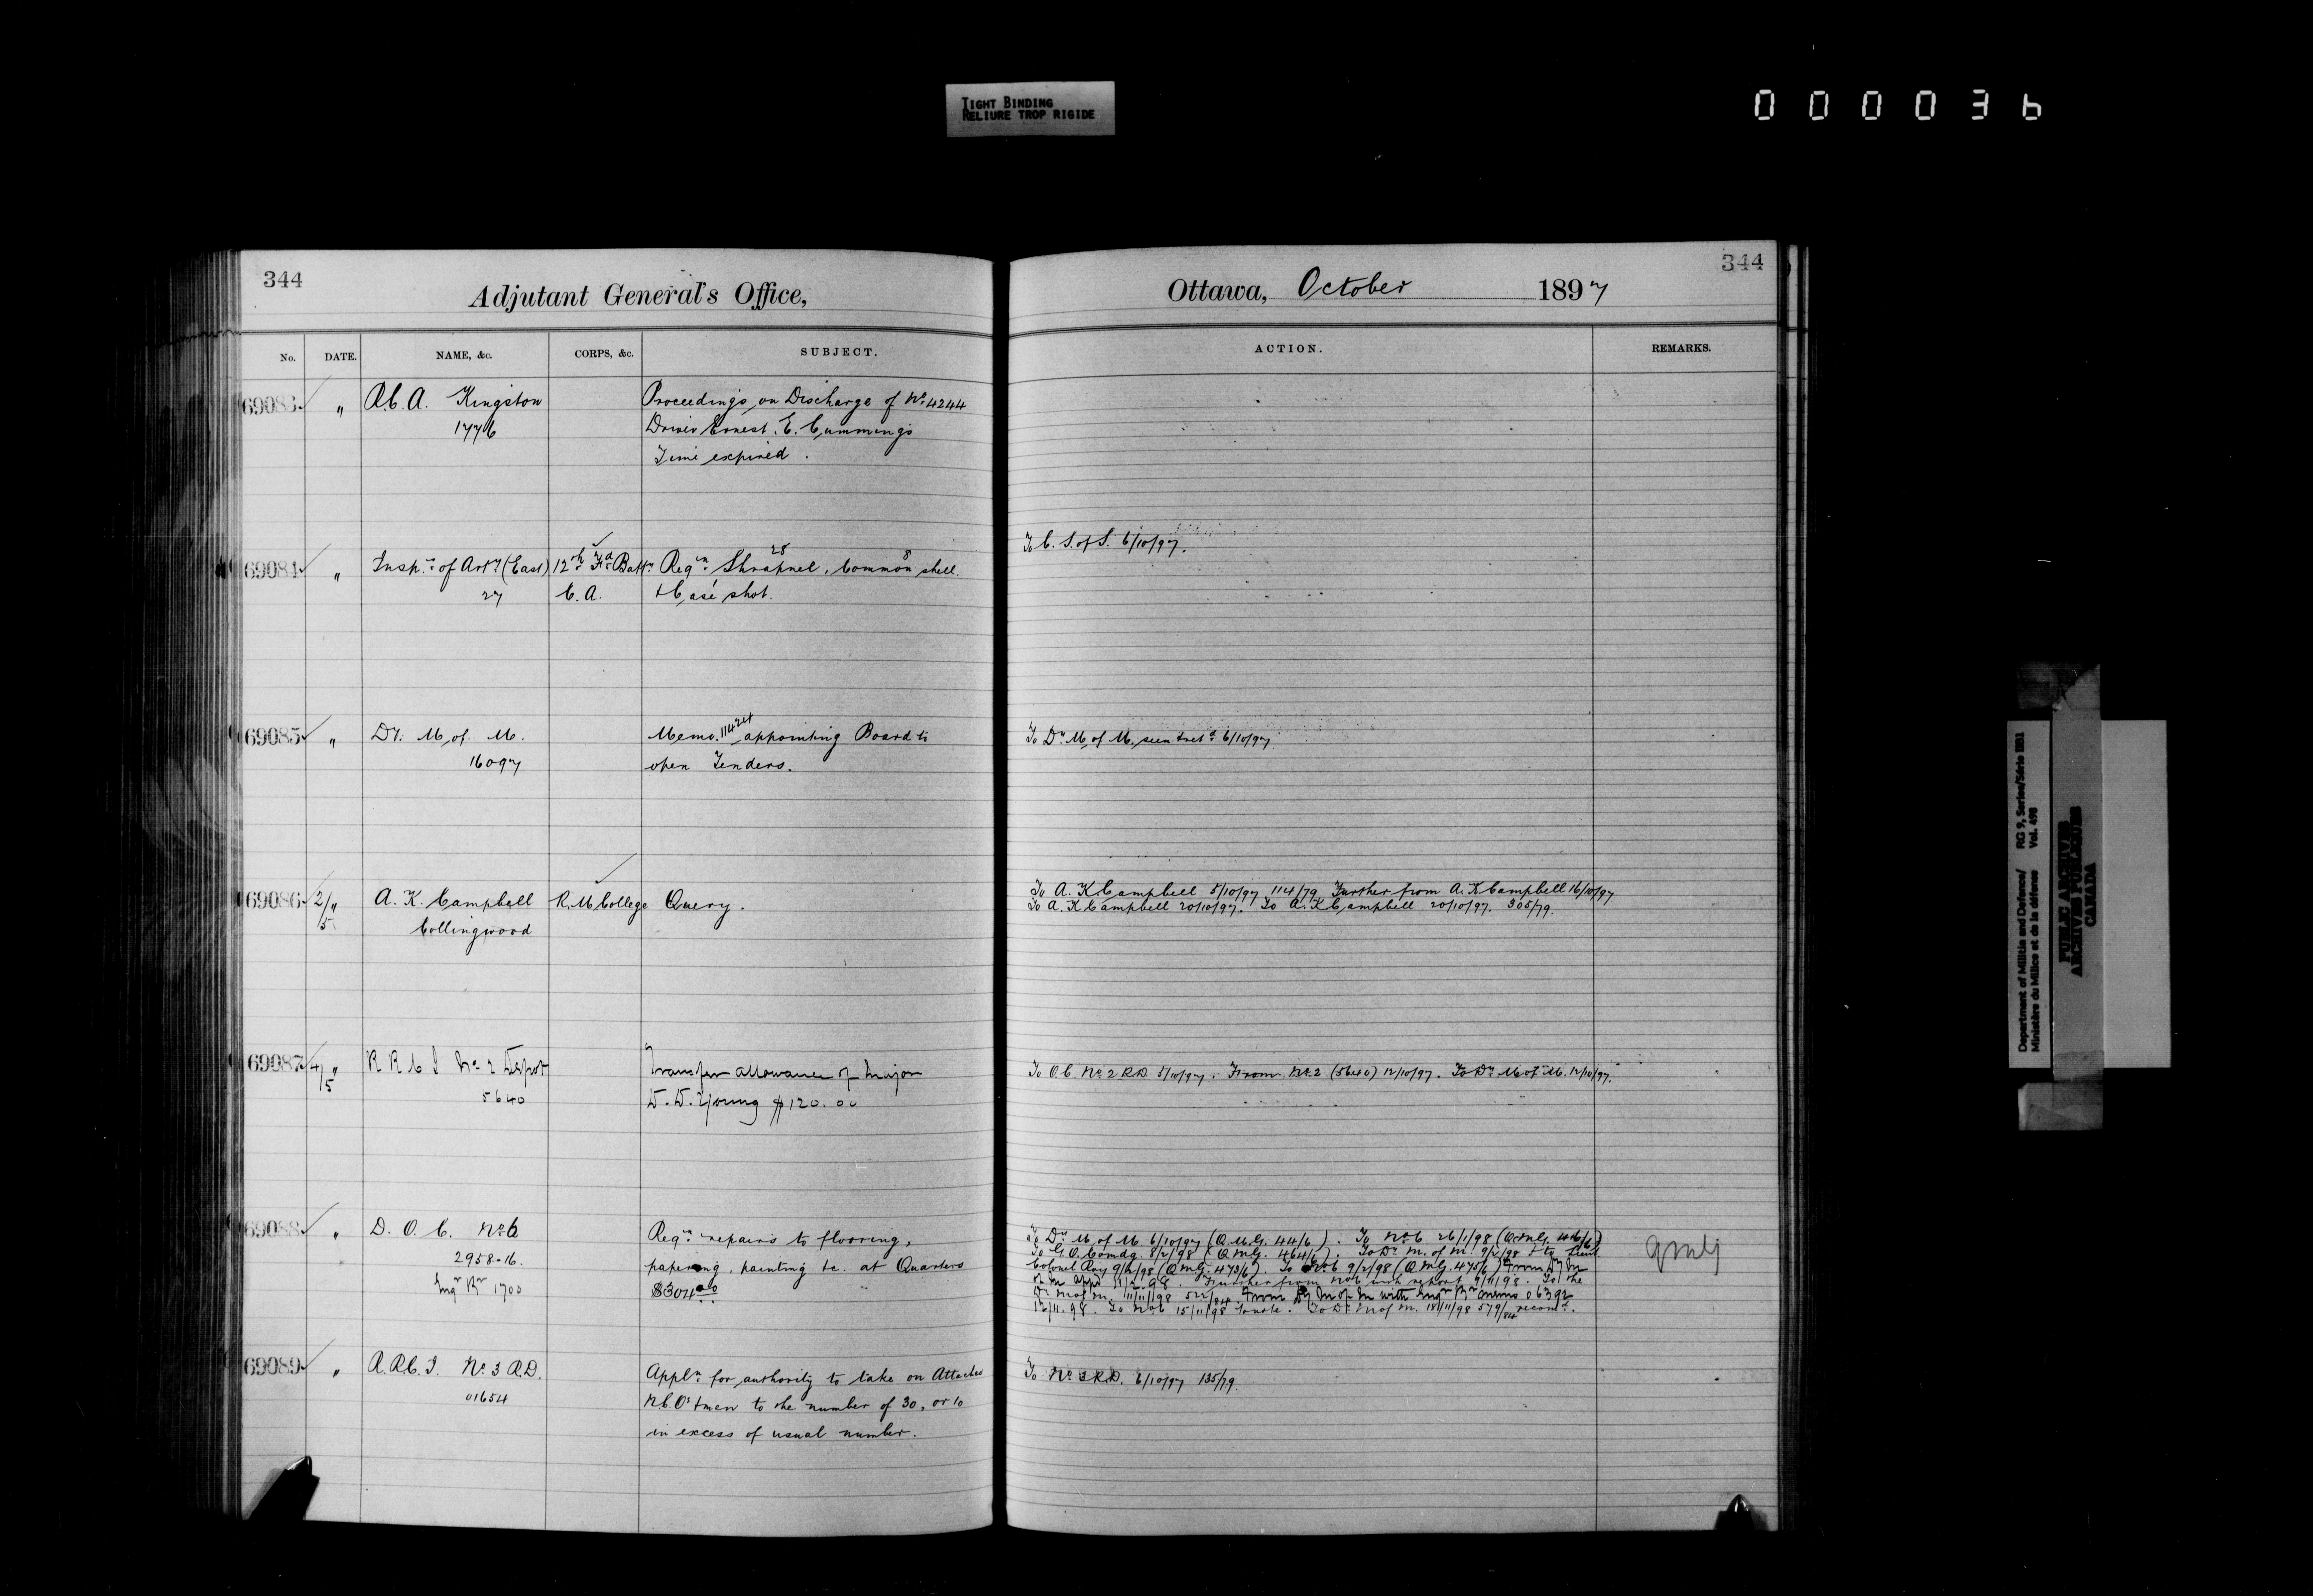 TIGHT BINDING
RELIURE TROP RIGIDE
000036
344
Adjutant General's Office,
No. DATE. NAME, &c. CORPS, &c. SUBJECT.
69083 " R.C.A. Kingston Proceedings on Discharge of No 4244
1776 Driver Ernest. E. Cummings
Time expired.
69084 " Inspr of Arty (East) 12th Fd Batty Reqn Shrapnel 28, Common 8 shell
27 C.A. + Case 1 shot.
69085 " Dr. M. of M. Memo. 11424 appointing Board to
16097 open Tenders.
69086 2/5 " A. K. Campbell R.M College Query.
Collingwood
69087 4/5 " R R C I No 2 Depot Transfer allowance of Major
5640 D. D. Young $120.00
69088 " D. O. C. No 6 Reqn repairs to flooring,
2958-16. papering, painting &c. at Quarters
Engr Br 1700 $304.00
69089 " R.R.C.I. No 3 R.D. Appln for authority to take on Attached
01654 N.C.O's + men to the number of 30, or 10
in excess of usual number.
344
Ottawa, October 1897
ACTION. REMARKS.
To C. S. of S. 6/10/97.
To Dr M. of M. seen & retd 6/10/97
To A. K Campbell 5/10/97 114/79 Further from A. K Campbell 16/10/97
To A. K Campbell 20/10/97. To A. K Campbell 20/10/97. 305/79.
To O.C. No 2 R.D. 5/10/97. From No 2 (5640) 12/10/97. To Dr M. of M. 12/10/97.
To Dr M. of M. 6/10/97 (Q.M.G. 44/6). To No 6 26/1/98 (Q.M.G. 446/6)
To G. O. Comdg. 8/2/98 (Q.M.G. 464/6). To Dr. M. of M. 9/2/98 & to Lieut
Colonel Roy 9/2/98 (Q.M.G. 473/6). To No 6 9/2/98 (Q.M.G. 475/6) From Dy M
of M 11/2/98. Further from No 6 with report 9/11/98. To the
Dr M of M. 11/11/98 From Dy M of M with Engr Br memo 06392
12/11.98. To No 6 15/11/98 To Dr M of M. 18/11/98 579/84
QMG
To No 3 R.D. 6/10/97 135/79.
Department of Militia and Defence/ RG 9, Series/Série IIB1
Ministère du Milice et de la défense Vol. 498
PUBLIC ARCHIVES
ARCHIVES PUBLIQUES
CANADA